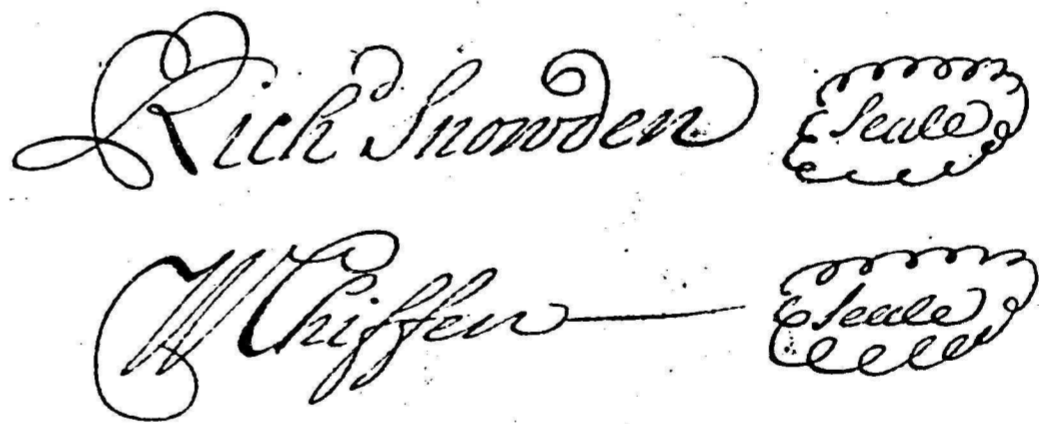 Richd Snowden Seale
W Chiffen Seale